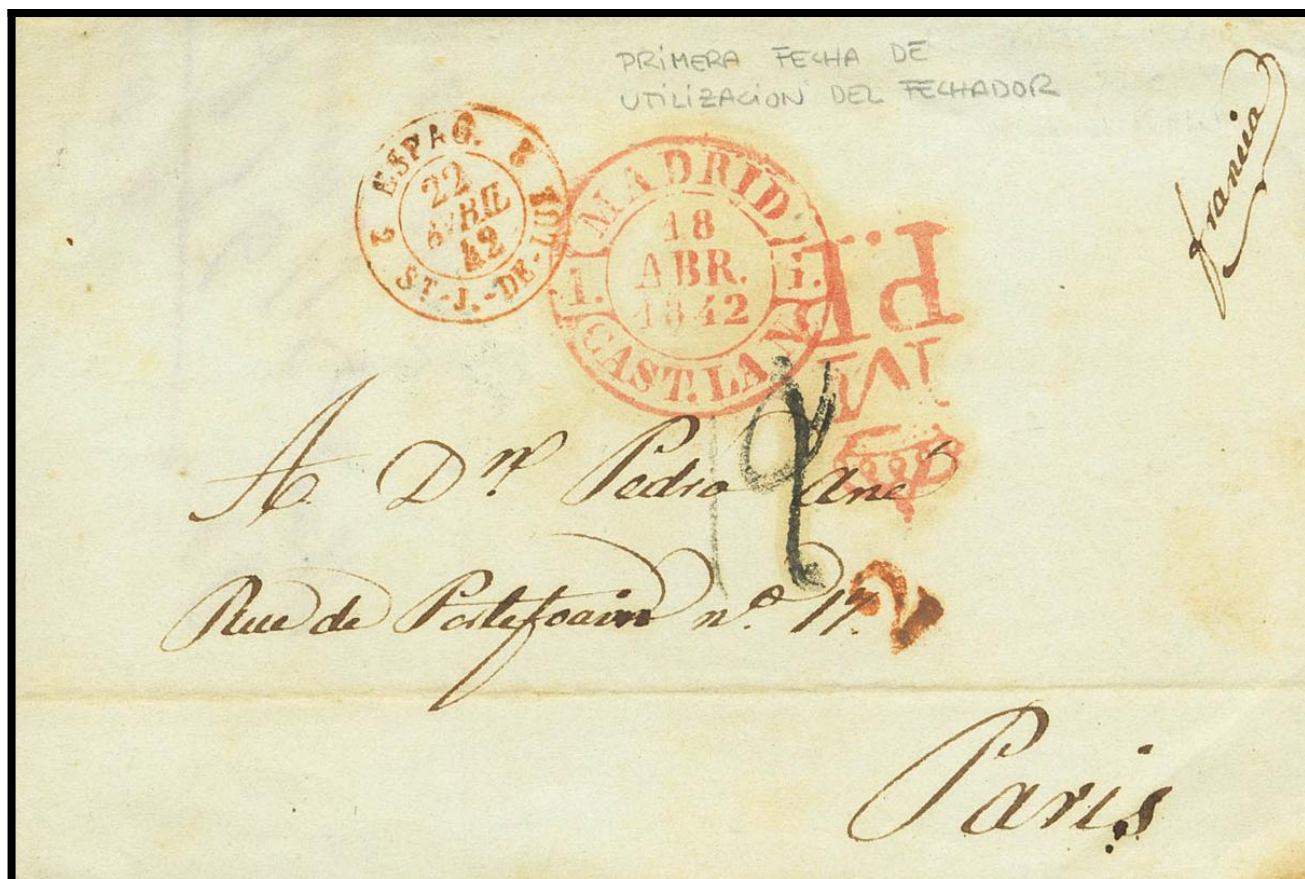 PRIMERA FECHA DE
UTILIZACION DEL FECHADOR
Francia
2 ESPAG. 2
ST-J.-DE-LUZ
22
AVRIL
42
MADRID
1. 1.
CAST. LA N.
18
ABR.
1842
P.P.
A Dn. Pedro
Rue de Portefoin nº. 17.
Paris